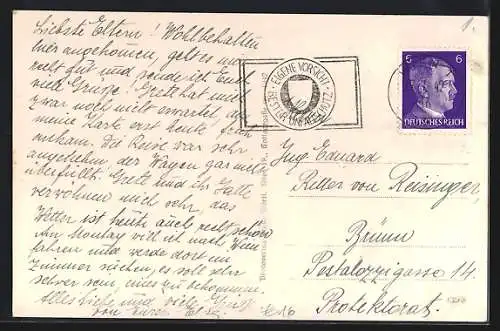 Liebste Eltern! Wohlbehalten
hier angekommen, geht es mir
recht gut und sende ich Euch
viele Grüsse. Grete hat mich
zwar noch nicht erwartet, da
meine Karte erst heute früh
ankam. Die Reise war sehr
angenehm der Wagen gar nicht
überfüllt. Grete und ihr Gatte
verwöhnen mich sehr, das
Wetter ist heute auch recht schön.
Am Montag will ich nach Wien
fahren und werde dort ein
Zimmer suchen, es soll sehr
schwer sein, eines zu bekommen.
Alles Liebe und viele Grüsse
von Eurer
EIGENE VORSICHT
BESTER UNFALLSCHUTZ
5 6
DEUTSCHES REICH
1.
Ing. Eduard
Ritter von Reisinger,
Brünn
Pestalozzigasse 14.
Protektorat.